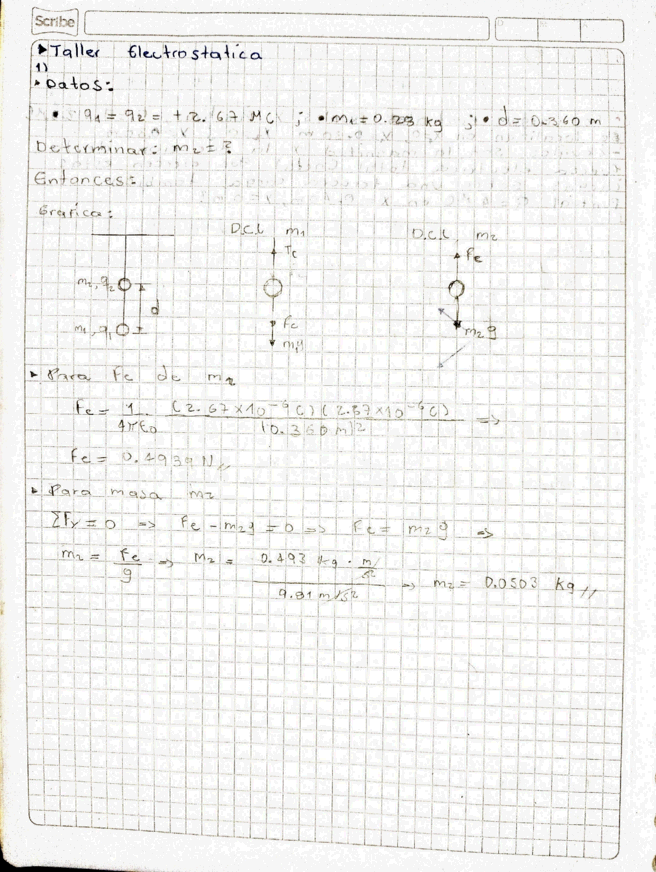 Scribe
▸ Taller Electrostatica
1)
▸ Datos:
• q1 = q2 = + 2.67 MC ; • m1 = 0.223 kg ; • d = 0.360 m
Determinar: m2 = ?
Entonces:
Grafica:
D.C.L m1 D.C.L m2
Tc Fe
m2, q2
d
m1, q1 Fc m2g
m1g
▸ Para Fc de m2
Fe = 1/4πε0 (2.67x10⁻⁶C)(2.67x10⁻⁶C)/(0.360m)² =>
Fe = 0.4939 N //
▸ Para masa m2
ΣFy = 0 => Fe - m2g = 0 => Fe = m2 g =>
m2 = Fe/g => m2 = 0.493 kg · m/s² / 9.81 m/s² => m2 = 0.0503 kg //